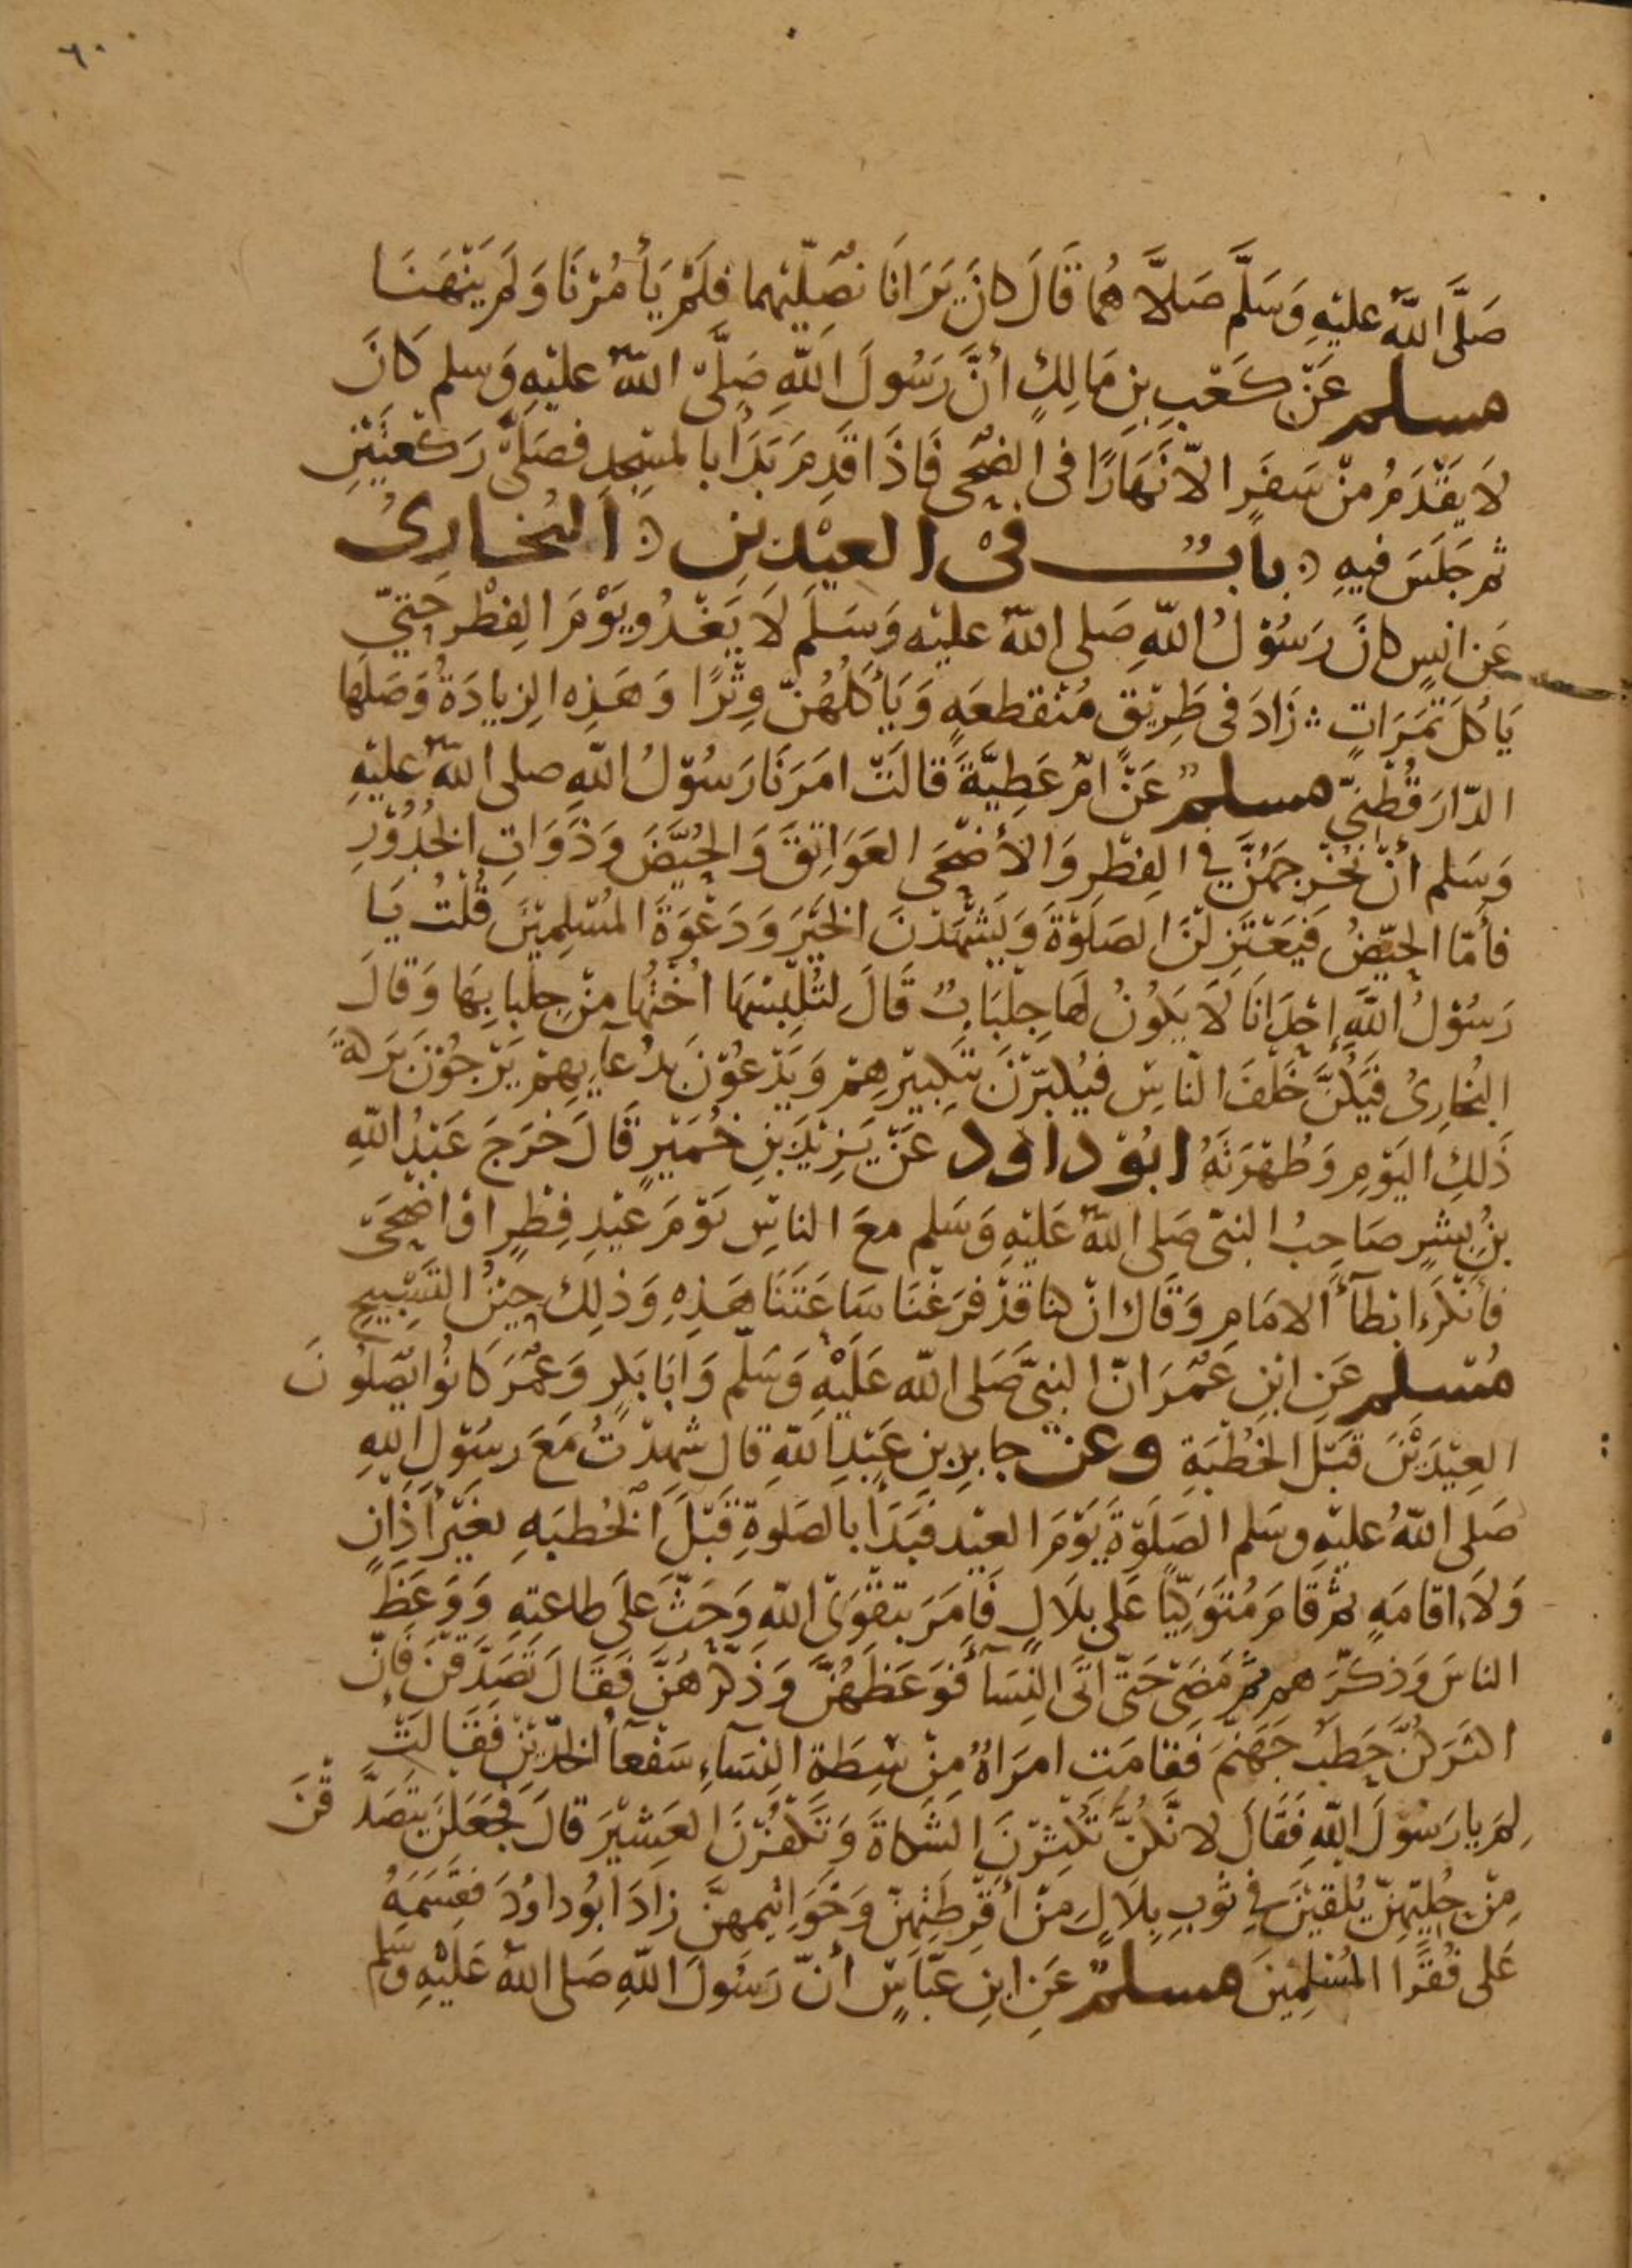 ٦٠
صَلَّى اللَّهُ عليْهِ وَسَلَّم صَلاَّهُمَا قَالَ كانَ يَرَانَا نصَلّيْهما فلَمْ يَأمُرْنَا وَلَمْ يَنْهَنَا
مسلم عَنْ كَعْبِ بنِ مَالِكٍ أنَّ رَسُولَ اللَّهِ صَلَّى اللَّهُ عليْهِ وَسلم كَانَ
لاَ يَقْدَمُ مِنْ سَفَرٍ الاّ نَهَارًا فى الضحَى فَاذَا قَدِمَ بَدَأ بالمسْجِدِ فصَلىَّ رَكْعَتَيْنِ
ثم جَلَسَ فيهِ ؞ بابٌ فىْ العيْدين ؞ البُخارىُ
عَن انسٍ كانَ رَسُوْلُ اللَّهِ صَلى اللَّهُ عليْه وَسَلَم لاَ يَغْدُو يَوْمَ الفِطْرِ حَتىّ
يَأكُلَ تَمَرَاتٍ ؞ زَادَ فى طَرِيْقٍ مُنْقطعَهٍ وَيَأكُلهُنّ وِتْرًا وَهَذِهِ الزيادَةُ وَصَلَها
الدّارَقُطْنِىّ مسلم عَنْ امّ عَطِيَّةَ قالَتْ امَرَنَا رَسُوْلُ اللَّهِ صلى اللَّهُ عليْهِ
وَسَلم أنْ نُخْرِجَهُنَّ فِي الفِطْرِ وَالأَضْحَى العَوَاتِقَ وَالحُيَّضَ وَذَوَاتِ الخُدُوْرِ
فأَمّا الحيّضُ فَيَعْتَزِلْنَ الصَلَوةَ وَيَشْهَدْنَ الخَيْرَ وَدَعْوَةَ المُسْلِمِيْنَ قُلْتُ يَا
رَسُوْلُ اللَّهِ إحْدَانَا لاَ يَكُونُ لهَا جِلْبَابٌ قَالَ لتُلْبِسْهَا اخْتُهَا مِنْ جِلْبابِهَا وَقالَ
البُخارىُ فيَكُنَّ خَلْفَ النّاسِ فيُكبرّنَ بتَكبِيْرِهِمْ وَيَدْعوْنَ بدُعآيِهِمْ يَرْجُوْنَ بَرَكةَ
ذَلِكَ اليَوْمِ وَطُهْرَتَهُ ابُوْ داود عَنْ يَزِيْدَ بْنِ خُمَيْرٍ قَالَ خَرَجَ عَبْدُ اللَّهِ
بْنُ بِشرٍ صَاحِبُ النبىّ صَلى اللَّهُ عَلَيْهِ وَسَلم معَ الناسِ يَوْمَ عيْدِ فِطْرٍ اوْ اضْحَىَ
فأنْكَرَ ابْطآءَ الامَامِ وَقَالَ انْ كنا قدْ فَرَغْنَا سَاعَتَنَا هَذِهِ وَذلِكَ حيْنَ التَسْبِيْحِ
مُسْلم عَنِ ابْنِ عُمَرَ انّ النبىَّ صَلى اللَّه عَلَيْهِ وَسَلّم وَابَا بَكرٍ وَعُمَرَ كَانوُا يُصَلونَ
العِيْدَيْنَ قَبْلَ الخُطْبَةِ وعن جابِرِ بنِ عَبْدِ اللَّهِ قال شهدْتُ مَعَ رسُوْلِ اللَّهِ
صَلى اللَّهُ عليْهِ وسَلم الصَلَوْةَ يَوْمَ العيْدِ فبَدَأَ بالصَلَوةِ قَبْلَ الخُطبَهِ بغيْرِ أَذَانٍ
وَلاَ اقامَهٍ ثُمّ قَامَ مُتَوَكِّيًا عَلى بلاَلٍ فَامَرَ بتقْوَى اللَّهِ وَحَثَّ عَلى طاعتِهِ وَوَعَظَ
الناسَ وَذكّرَهم ثُمّ مَضَى حَتّى اتَى النِسَآءَ فَوَعَظَهُنَّ وَذكّرَهُنَّ فقالَ تَصَدَّقنَ فَانّ
اكثَرَكنَّ حَطبُ جَهَنّمَ فَقامَتِ امرَاةٌ مِنْ سِطَةِ النِسَآءِ سَفْعآءُ الخدّيْنِ فَقَالَتْ
لِمَ يا رَسُوْلَ اللَّهِ فقَالَ لانّكُنَّ تُكْثِرْنَ الشَكاةَ وَتَكْفُرْنَ العَشِيْرَ قالَ فجَعَلنَ يتصَدَّقْنَ
مِنْ حُليّهِنّ يُلقيْنَ فِي ثوْبِ بِلاَلٍ مِنْ أَقْرِطَتِهِنّ وَخَوَاتِيمهِنَّ زادَ ابُو داوُدَ فقسَمَهُ
عَلى فُقَرَا المُسْلِمِيْنَ مسلمٌ عَنِ ابنِ عَبّاسٍ أنّ رَسُولَ اللَّهِ صَلى اللَّهُ عَلَيْهِ وَسَلم